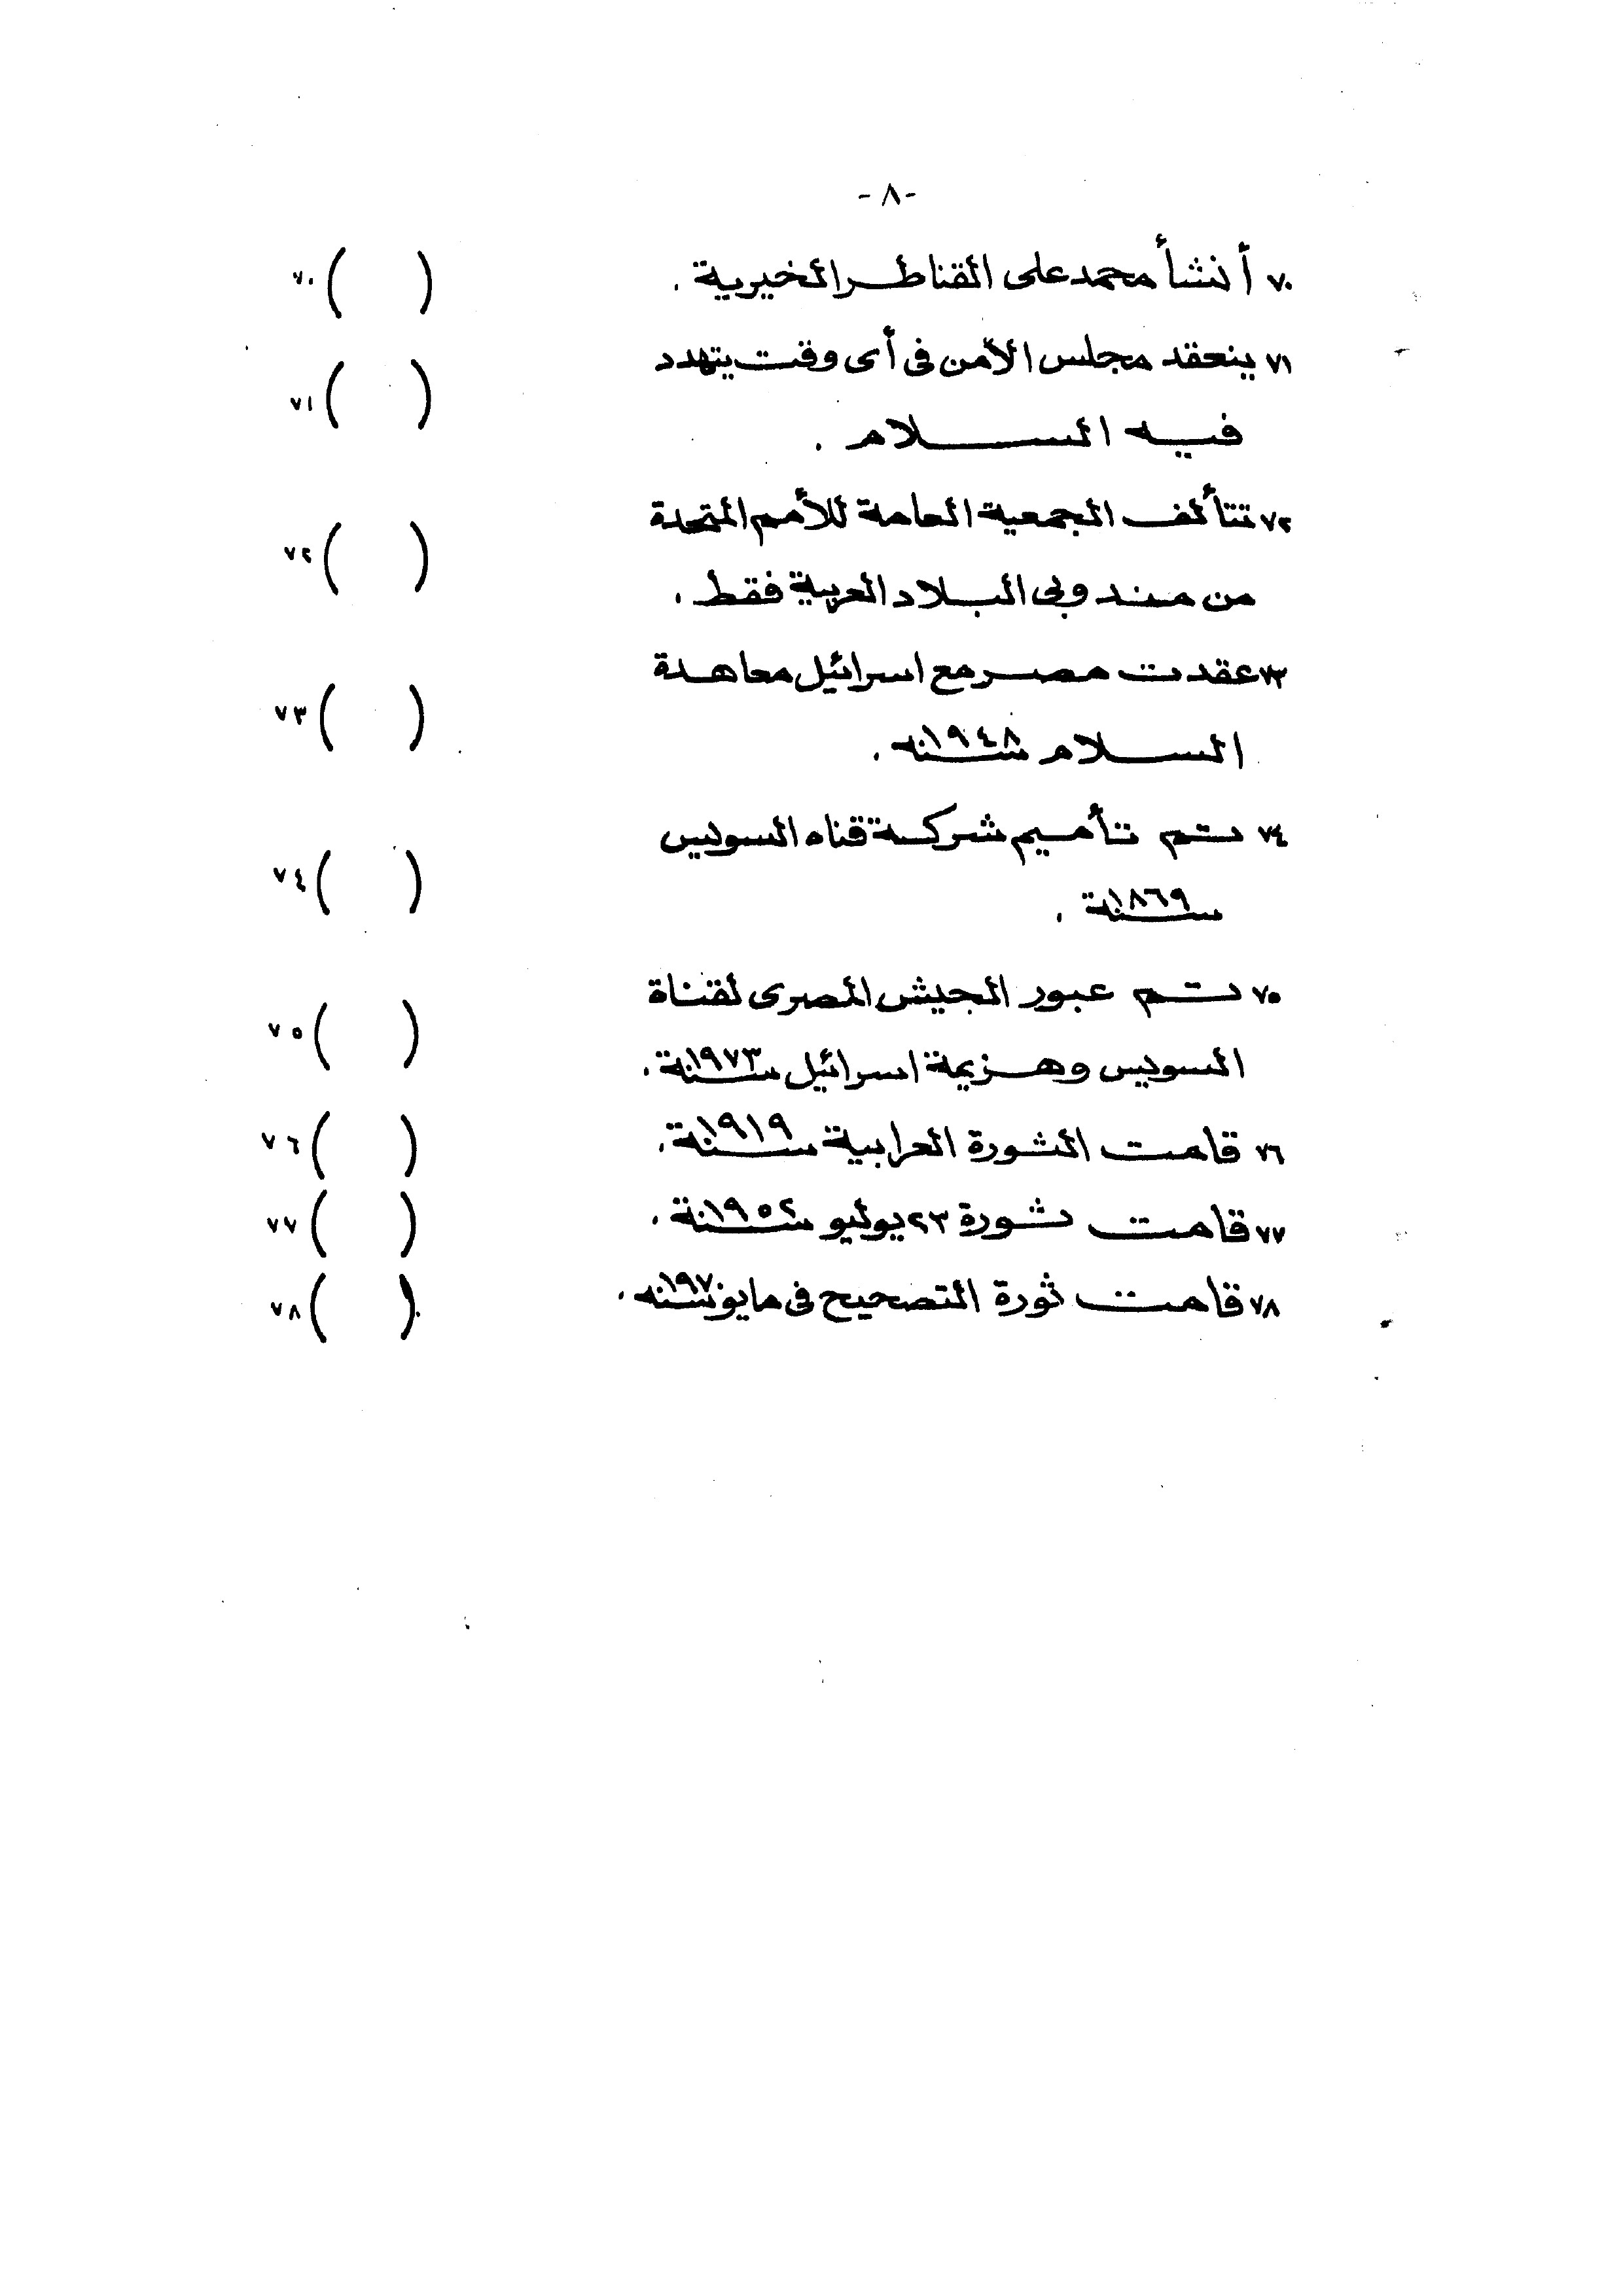 -٨-
٧٠ أنشأ محمد على القناطر الخيرية . ( ) ٧٠
٧١ ينعقد مجلس الأمن فى أى وقت يتهدد
فيه السلام . ( ) ٧١
٧٢ تتألف الجمعية العامة للأمم المتحدة
من مندوبى البلاد العربية فقط . ( ) ٧٢
٧٣ عقدت مصر مع اسرائيل معاهدة
السلام سنه ١٩٤٨ . ( ) ٧٣
٧٤ تم تأميم شركة قناه السويس
سنة ١٨٦٩ . ( ) ٧٤
٧٥ تم عبور الجيش المصرى لقناة
السويس وهزيمة اسرائيل سنة ١٩٧٣ . ( ) ٧٥
٧٦ قامت الثورة العرابية سنة ١٩١٩ . ( ) ٧٦
٧٧ قامت ثورة ٢٣ يوليو سنة ١٩٥٢ . ( ) ٧٧
٧٨ قامت ثورة التصحيح فى مايو سنه ١٩٧٠ . ( ) ٧٨